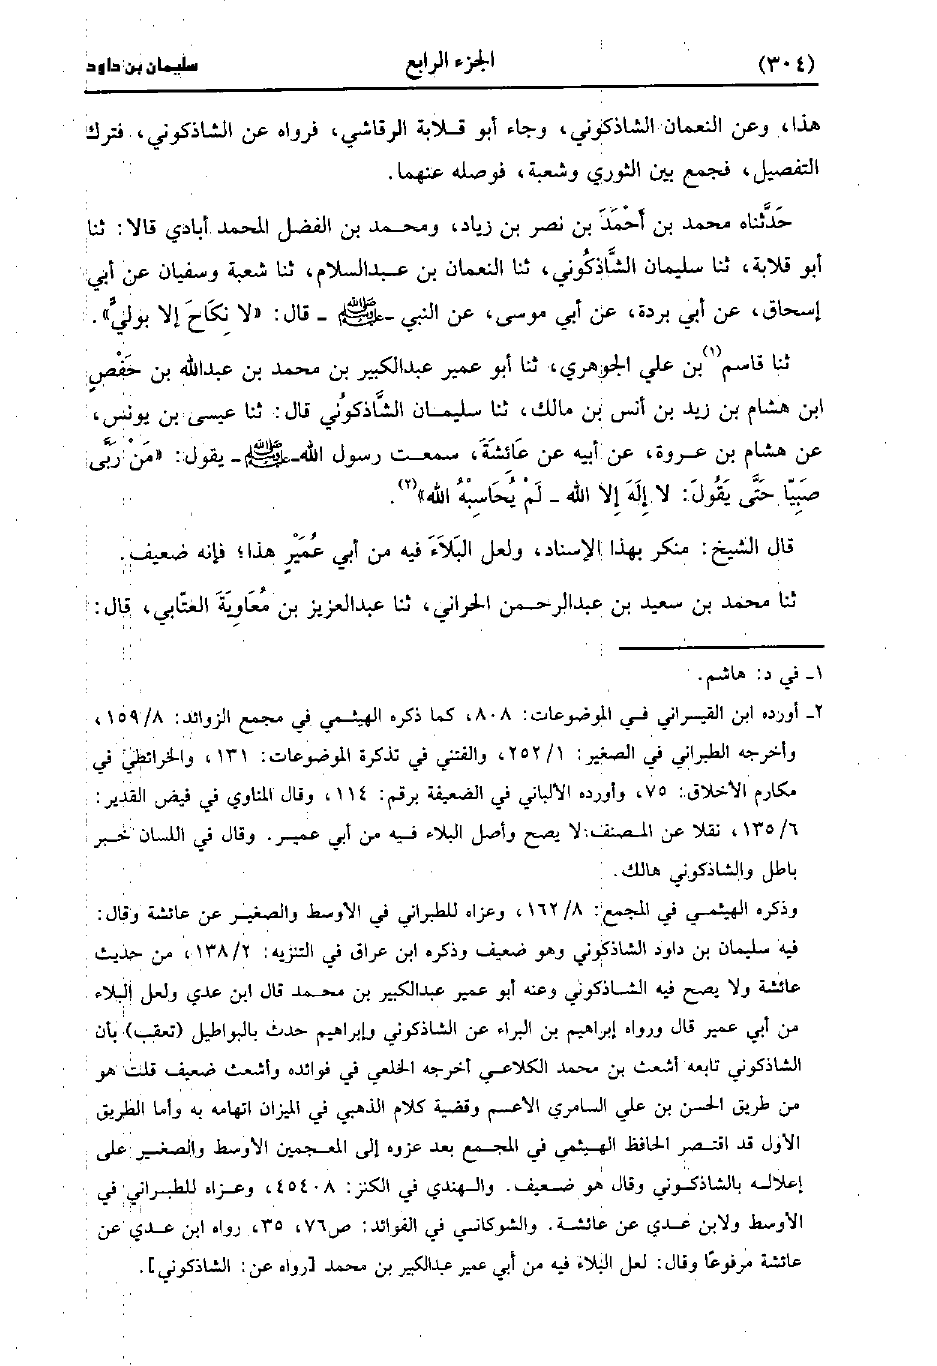 (٣٠٤) الجزء الرابع سليمان بن داود
هذا، وعن النعمان الشاذكوني، وجاء أبو قلابة الرقاشي، فرواه عن الشاذكوني، فترك
التفصيل، فجمع بين الثوري وشعبة، فوصله عنهما.
حَدَّثناه محمد بن أَحْمَدَ بن نصر بن زياد، ومحمد بن الفضل المحمد أبادي قالا: ثنا
أبو قلابة، ثنا سليمان الشَّاذكُوني، ثنا النعمان بن عبدالسلام، ثنا شعبة وسفيان عن أبي
إسحاق، عن أبي بردة، عن أبي موسى، عن النبي ـ ﷺ ـ قال: «لا نِكَاحَ إلا بوليٍّ».
ثنا قاسم(١) بن علي الجوهري، ثنا أبو عمير عبدالكبير بن محمد بن عبدالله بن حَفْصٍ
ابن هشام بن زيد بن أنس بن مالك، ثنا سليمان الشَّاذكُوني قال: ثنا عيسى بن يونس،
عن هشام بن عروة، عن أبيه عن عَائِشَةَ، سمعت رسول الله ـ ﷺ ـ يقول: «مَنْ رَبَّى
صَبِيّا حَتَّى يَقُولَ: لا إِلَهَ إلا الله ـ لَمْ يُحَاسِبْهُ الله»(٢).
قال الشيخ: منكر بهذا الإسناد، ولعل البَلاَءَ فيه من أبي عُمَيْرٍ هذا؛ فإنه ضعيف.
ثنا محمد بن سعيد بن عبدالرحمن الحراني، ثنا عبدالعزيز بن مُعَاوِيَةَ العتَّابي، قال:
١ـ في د: هاشم.
٢ـ أورده ابن القيسراني في الموضوعات: ٨٠٨، كما ذكره الهيثمي في مجمع الزوائد: ١٥٩/٨،
وأخرجه الطبراني في الصغير: ٢٥٢/١، والفتني في تذكرة الموضوعات: ١٣١، والخرائطي في
مكارم الأخلاق: ٧٥، وأورده الألباني في الضعيفة برقم: ١١٤، وقال المناوي في فيض القدير:
١٣٥/٦، نقلا عن المصنف: لا يصح وأصل البلاء فيه من أبي عمير. وقال في اللسان خبر
باطل والشاذكوني هالك.
وذكره الهيثمي في المجمع: ١٦٢/٨، وعزاه للطبراني في الأوسط والصغير عن عائشة وقال:
فيه سليمان بن داود الشاذكوني وهو ضعيف وذكره ابن عراق في التنزيه: ١٣٨/٢، من حديث
عائشة ولا يصح فيه الشاذكوني وعنه أبو عمير عبدالكبير بن محمد قال ابن عدي ولعل البلاء
من أبي عمير قال ورواه إبراهيم بن البراء عن الشاذكوني وإبراهيم حدث بالبواطيل (تعقب) بأن
الشاذكوني تابعه أشعث بن محمد الكلاعي أخرجه الخلعي في فوائده وأشعث ضعيف قلت هو
من طريق الحسن بن علي السامري الأعسم وقضية كلام الذهبي في الميزان اتهامه به وأما الطريق
الأول قد اقتصر الحافظ الهيثمي في المجمع بعد عزوه إلى المعجمين الأوسط والصغير على
إعلاله بالشاذكوني وقال هو ضعيف. والهندي في الكنز: ٤٥٤٠٨، وعزاه للطبراني في
الأوسط ولابن عدي عن عائشة. والشوكاني في الفوائد: ص٧٦، ٣٥، رواه ابن عدي عن
عائشة مرفوعًا وقال: لعل البلاء فيه من أبي عمير عبدالكبير بن محمد [رواه عن: الشاذكوني].